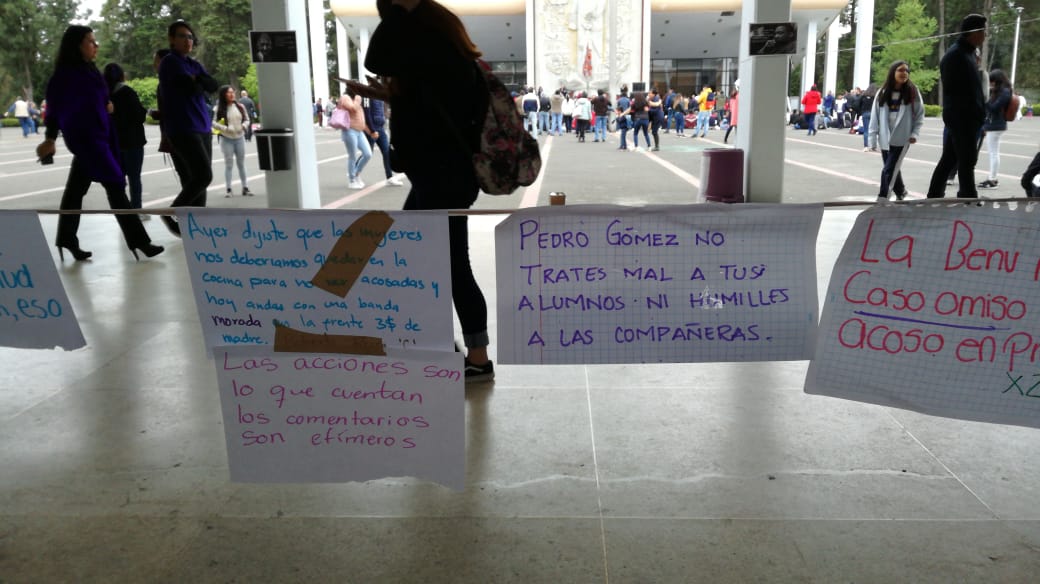 ud
n, eso
Ayer dijiste que las mujeres
nos deberíamos quedar en la
cocina para no ser acosadas y
hoy andas con una banda
morada en la frente 3$ de
madre.
Las acciones son
lo que cuentan
los comentarios
son efímeros
PEDRO GÓMEZ NO
TRATES MAL A TUS
ALUMNOS NI HUMILLES
A LAS COMPAÑERAS.
La Benu
Caso omiso
acoso en Pr